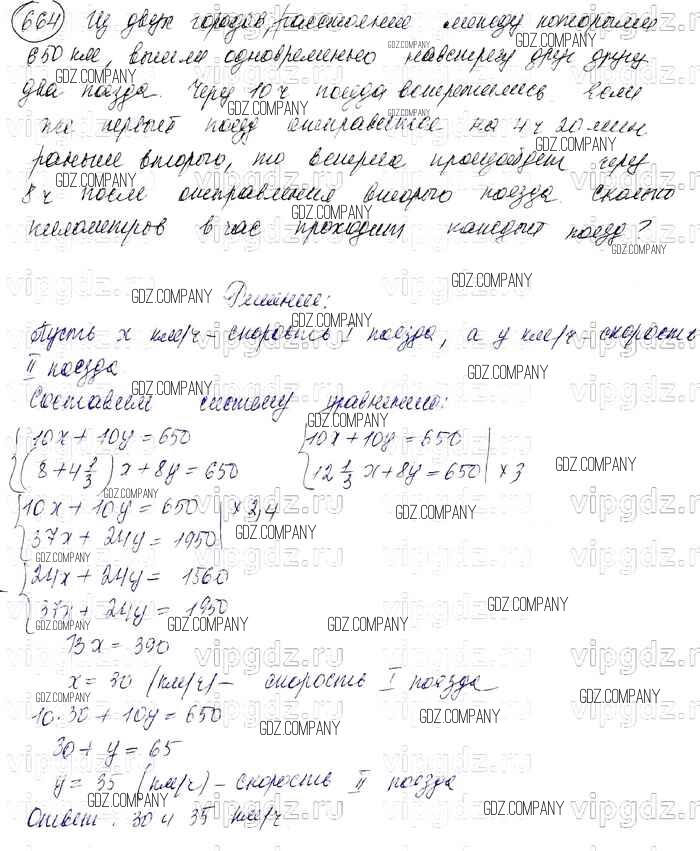 664 Из двух городов, расстояние между которыми
650 км, вышли одновременно навстречу друг другу
два поезда. Через 10 ч поезда встретились. Если
же первый поезд отправится на 4 ч 20 мин
раньше второго, то встреча произойдет через
8 ч после отправления второго поезда. Сколько
километров в час проходит каждый поезд?
Решение:
Пусть x км/ч – скорость I поезда, а y км/ч – скорость
II поезда
Составим систему уравнений:
10x + 10y = 650 10x + 10y = 650
(8 + 4 1/3) x + 8y = 650 12 1/3 x + 8y = 650 | × 3
10x + 10y = 650 | × 2,4
37x + 24y = 1950
24x + 24y = 1560
37x + 24y = 1950
13x = 390
x = 30 (км/ч) – скорость I поезда
10·30 + 10y = 650
30 + y = 65
y = 35 (км/ч) – скорость II поезда
Ответ: 30 и 35 км/ч
GDZ.COMPANY
vipgdz.ru